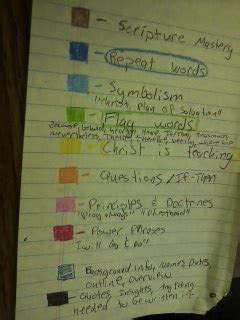 - Scripture Mastery
- Repeat words
- Symbolism
"Christ, Plan of Salvation"
- Flag words
Christ is teaching
- Questions / If-Then
- Principles & Doctrines
"Pray always" "Priesthood"
- Power Phrases
"I will Go & Do"
Background info, Names, Dates,
outline, overview
- Quotes, Insights, Anything
needed to be written in